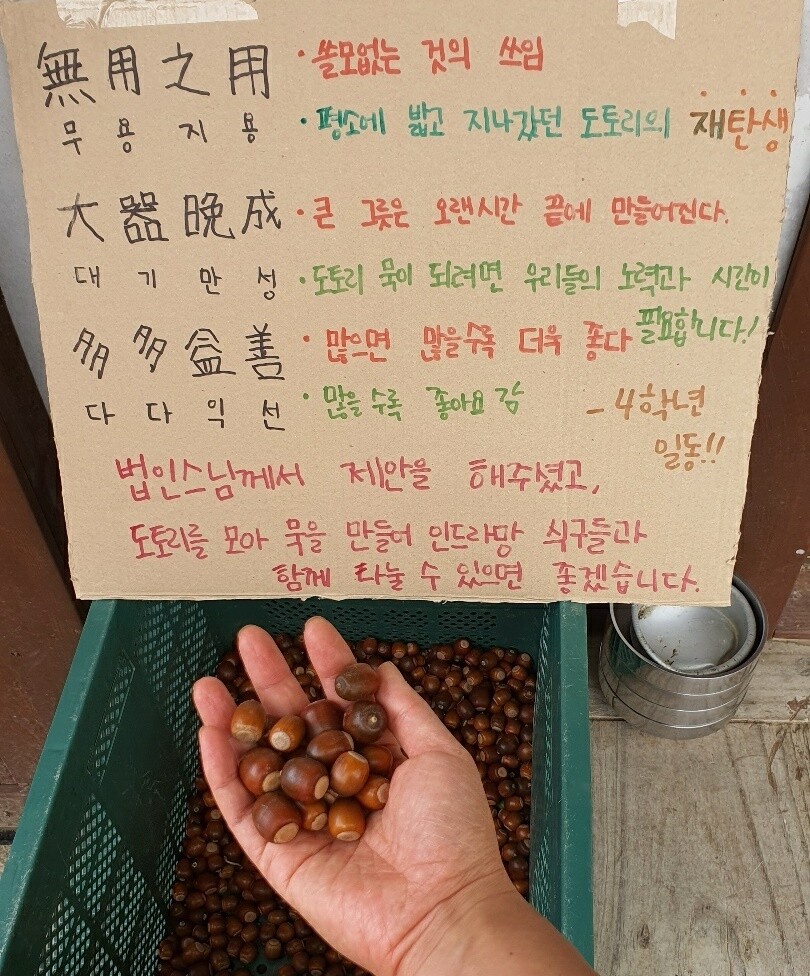 無用之用 · 쓸모없는 것의 쓰임
무용지용 · 평소에 밟고 지나갔던 도토리의 재탄생
大器晩成 · 큰 그릇은 오랜시간 끝에 만들어진다.
대기만성 · 도토리 묵이 되려면 우리들의 노력과 시간이
필요합니다!
多多益善 · 많으면 많을수록 더욱 좋다
다다익선 · 많을수록 좋아요 감
- 4학년
일동!!
법인스님께서 제안을 해주셨고,
도토리를 모아 묵을 만들어 인드라망 식구들과
함께 나눌 수 있으면 좋겠습니다.